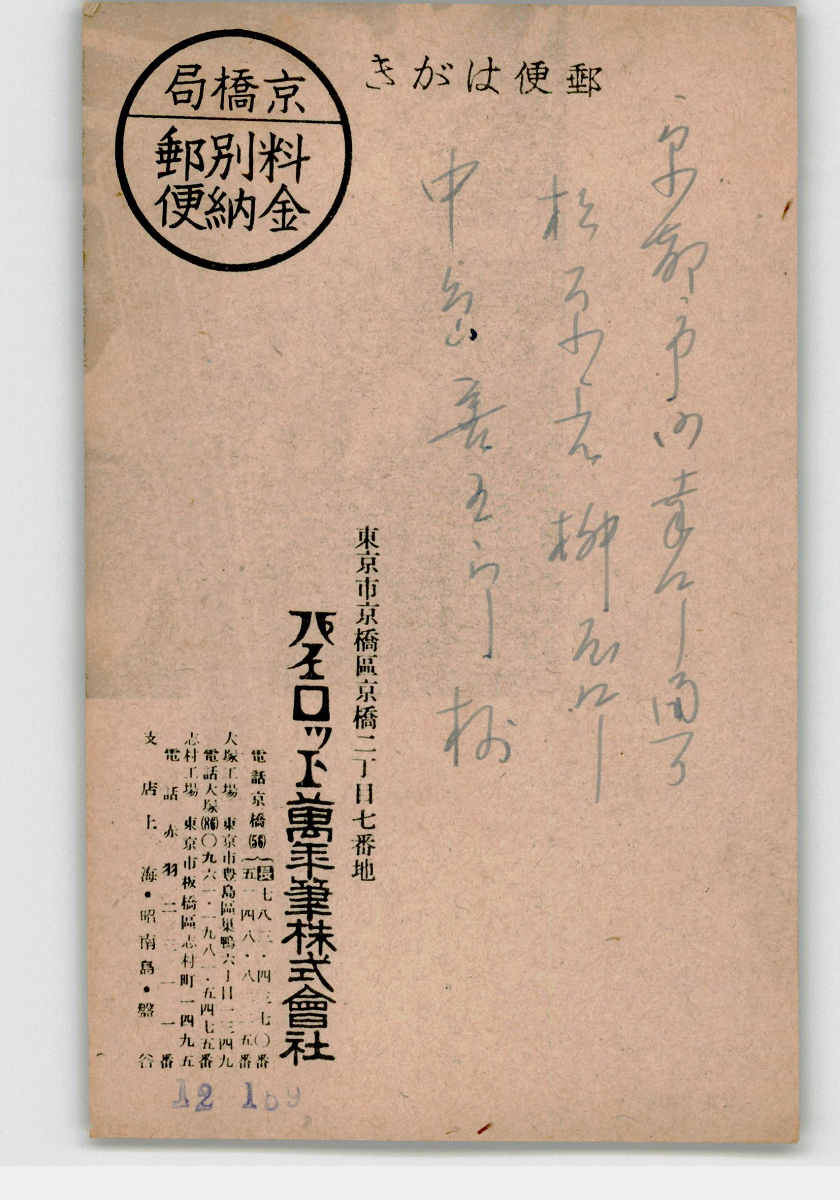 郵便はがき
京橋局
料金別納郵便
京都市
松原
中島善五郎様
東京市京橋區京橋二丁目七番地
パイロット萬年筆株式會社
電話京橋(56)
大塚工場 東京市豊島區巣鴨六丁目一三四九
電話大塚(86)〇九六一・一九八一・五四七五番
志村工場 東京市板橋區志村町一四九五
電話赤羽二三一一番
支店上海・昭南島・盤谷